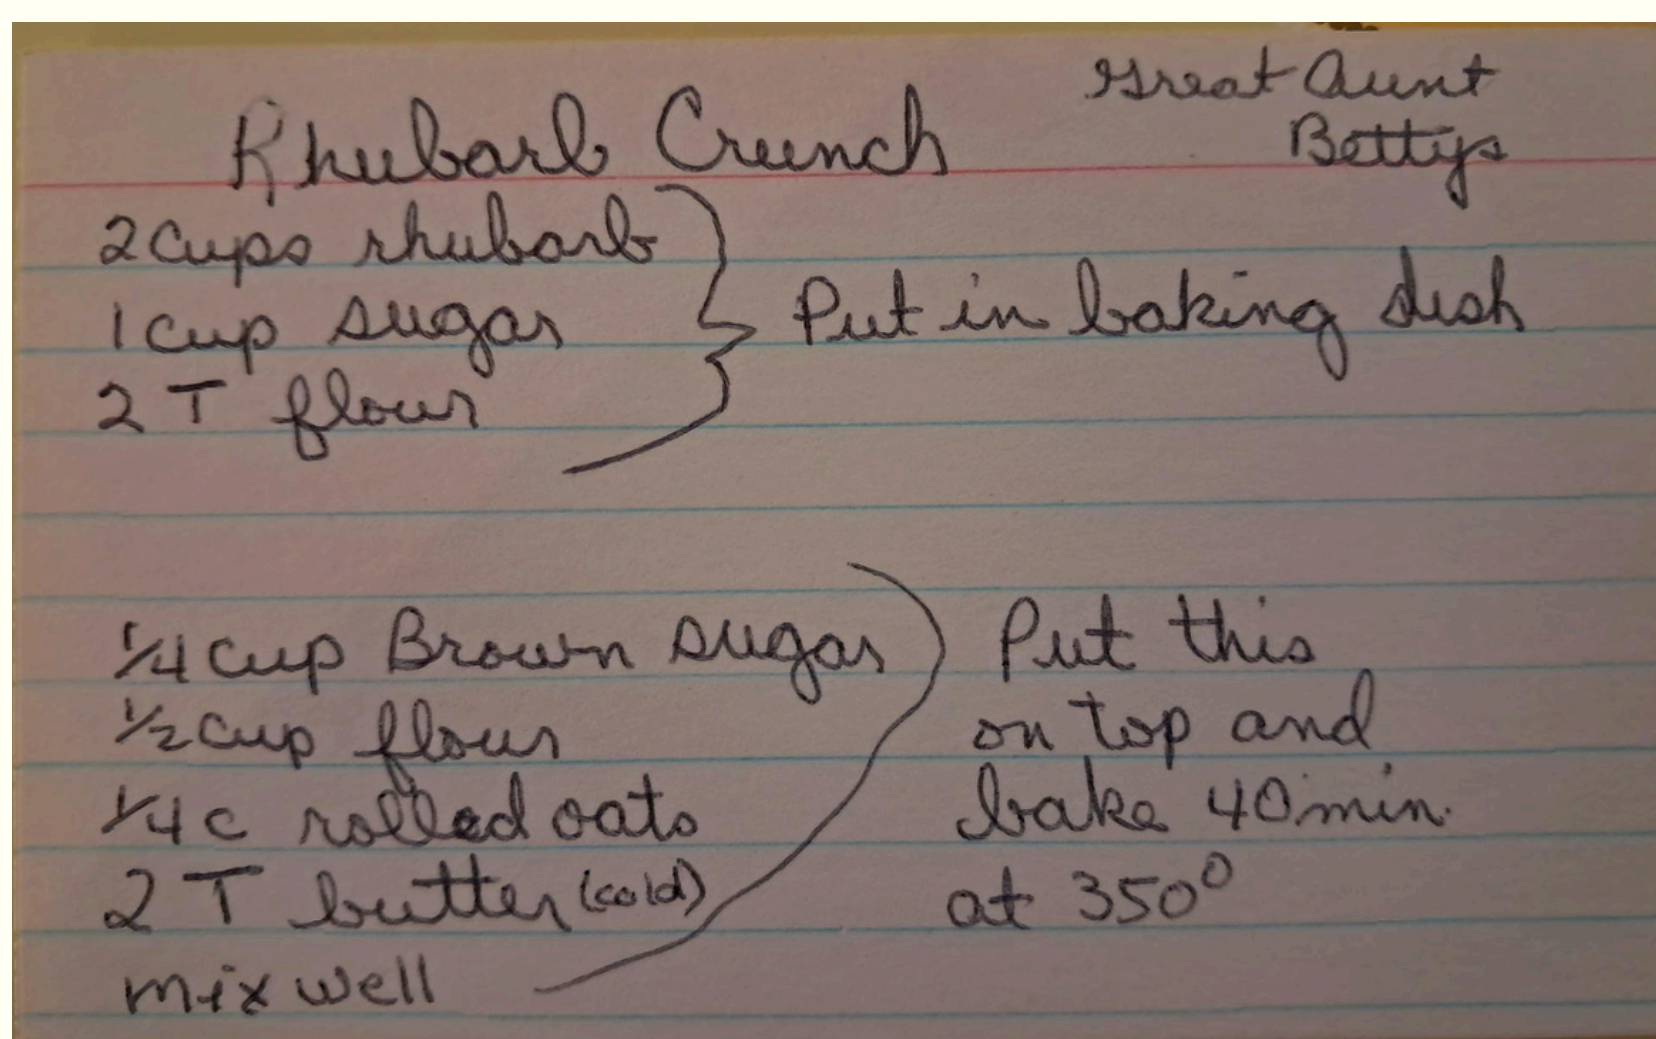 Great Aunt
Bettys
Rhubarb Crunch
2 cups rhubarb
1 cup sugar
2 T flour
Put in baking dish
1/4 cup Brown sugar
1/2 cup flour
1/4 c rolled oats
2 T butter (cold)
mix well
Put this
on top and
bake 40 min.
at 350°